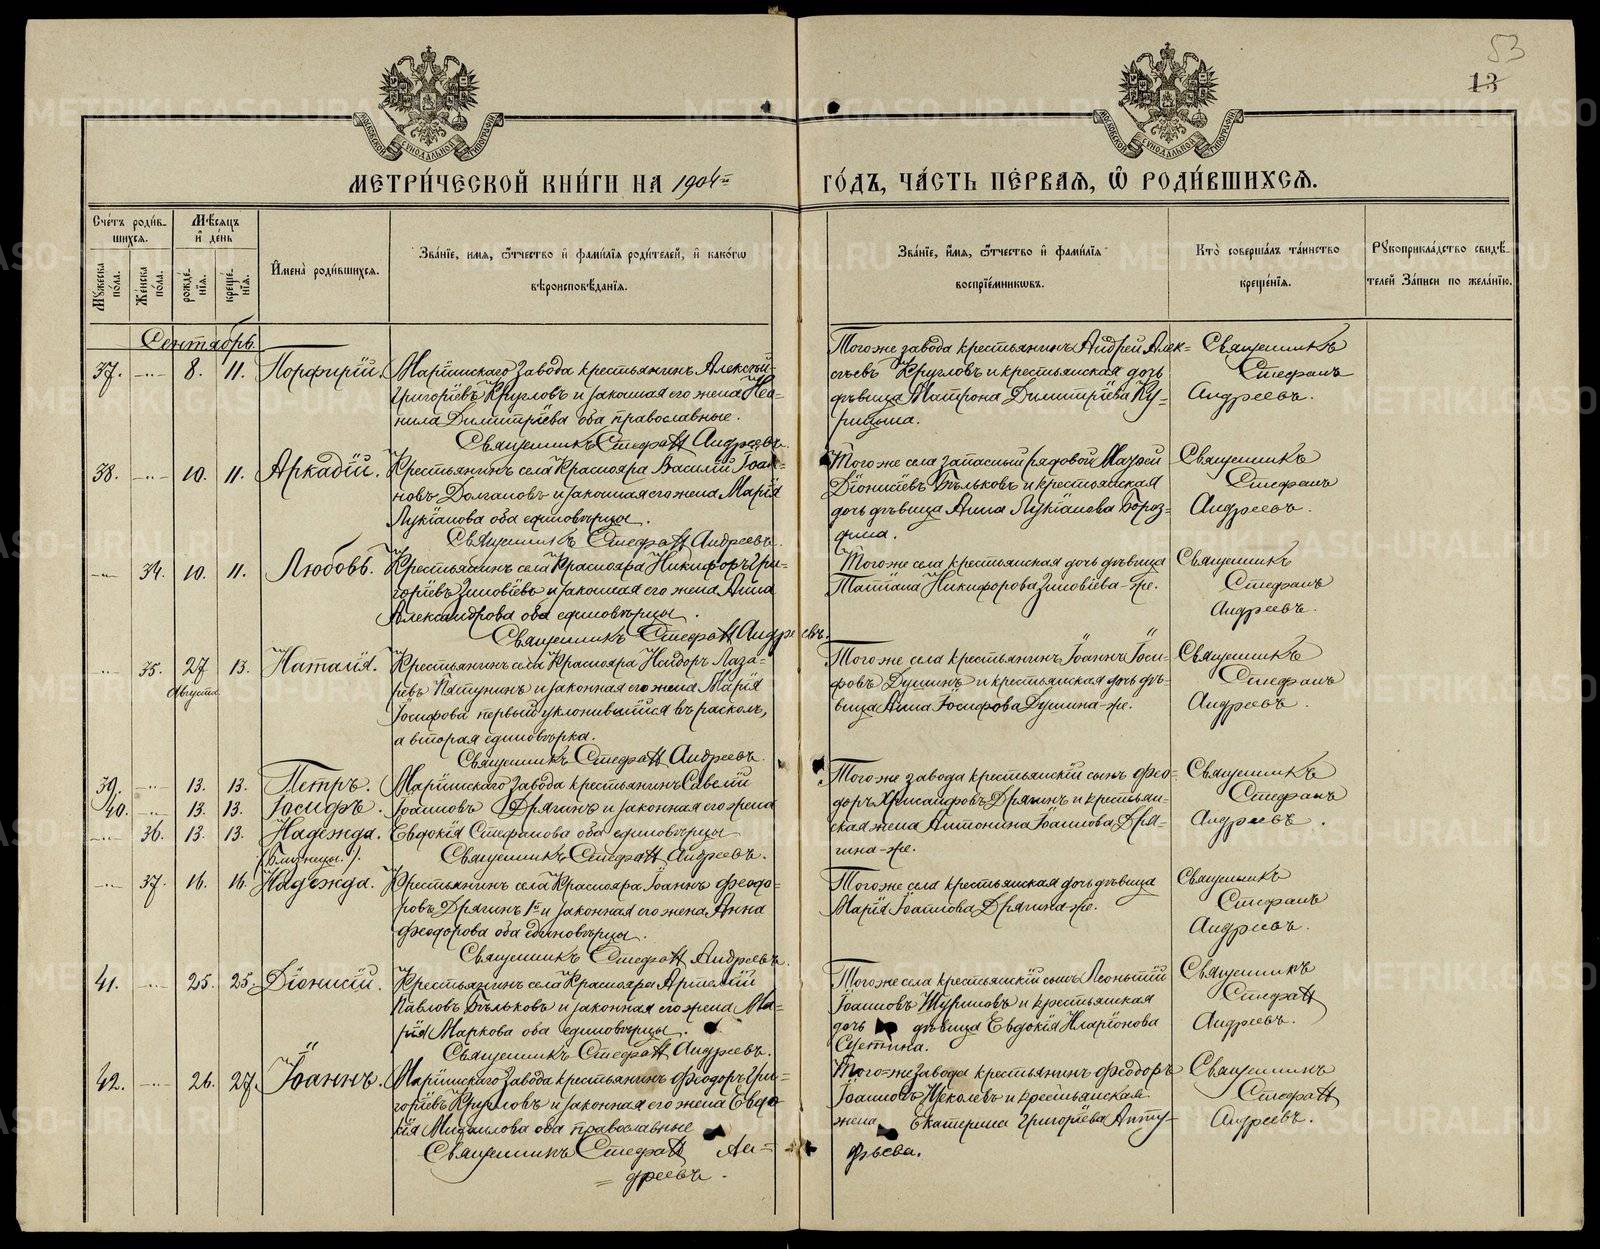 53
13
МЕТРИ́ЧЕСКОЙ КНИ́ГИ НА 1904й ГО́ДЪ, ЧА́СТЬ ПЕ́РВАЯ, Ѡ҆ РОДИ́ВШИХСЯ.
Сче́тъ роди́в-
шихся.
Мѣ́сяцъ
и҆ де́нь
Му́жеска
по́ла.
Же́нска
по́ла.
рожде́-
нїя.
креще́-
нїя.
И҆мена̀ роди́вшихся.
Зва́нїе, и҆мя, ѻ҆́тчество и҆ фами́лїя роди́телей, и҆ како́гѡ
вѣроисповѣ́данїя.
Зва́нїе, и҆́мя, ѻ҆́тчество и҆ фами́лїя
воспрїе́мникѡвъ.
Кто̀ соверша́лъ та́инство
креще́нїя.
Рꙋкоприкла́дство свидѣ́-
телей за́писи по жела́нїю.
Сентябрь.
37. -"- 8. 11. Порфирій.
Маріинскаго завода крестьянинъ Алексѣй
Григоріевъ Кругловъ и законная его жена Нео-
нила Димитріева оба православные.
Священникъ Стефанъ Андреевъ.
Того же завода крестьянинъ Андрей Алек-
сѣевъ Кругловъ и крестьянская дочь
дѣвица Матрона Димитріева Ку-
рицына.
Священникъ
Стефанъ
Андреевъ.
38. -"- 10. 11. Аркадій.
Крестьянинъ села Краснояра Василій Іоан-
новъ Долгановъ и законная его жена Марія
Лукіанова оба единовѣрцы.
Священникъ Стефанъ Андреевъ.
Того же села запасный рядовой Мачей
Діонисіевъ Бѣльковъ и крестьянская
дочь дѣвица Анна Лукіанова Бороз-
дина.
Священникъ
Стефанъ
Андреевъ.
-"- 34. 10. 11. Любовь.
Крестьянинъ села Краснояра Никифоръ Гри-
горіевъ Зиновіевъ и законная его жена Анна
Александрова оба единовѣрцы.
Священникъ Стефанъ Андреевъ.
Того же села крестьянская дочь дѣвица
Татіана Никифорова Зиновіева-же.
Священникъ
Стефанъ
Андреевъ.
-"- 35. 27 Августа 13. Наталія.
Крестьянинъ села Краснояра Исидоръ Лаза-
ревъ Пятунинъ и законная его жена Марія
Іосифова первый уклонившійся въ расколъ,
а вторая единовѣрка.
Священникъ Стефанъ Андреевъ.
Того же села крестьянинъ Іоаннъ Іоси-
фовъ Душинъ и крестьянская дочь дѣ-
вица Анна Іосифова Душина-же.
Священникъ
Стефанъ
Андреевъ.
39. -"- 13. 13. Петръ.
40. -"- 13. 13. Іосифъ.
-"- 36. 13. 13. Надежда.
(Близнецы.)
Маріинскаго завода крестьянинъ Савелій
Іоанновъ Дрягинъ и законная его жена
Евдокія Стефанова оба единовѣрцы
Священникъ Стефанъ Андреевъ.
Того же завода крестьянскій сынъ Фео-
доръ Хрисанфовъ Дрягинъ и крестьян-
ская жена Антонина Іоаннова Дря-
гина-же.
Священникъ
Стефанъ
Андреевъ.
-"- 37. 16. 16. Надежда.
Крестьянинъ села Краснояра Іоаннъ Феодо-
ровъ Дрягинъ 1й и законная его жена Анна
Феодорова оба единовѣрцы.
Священникъ Стефанъ Андреевъ.
Того же села крестьянская дочь дѣвица
Марія Іоаннова Дрягина-же.
Священникъ
Стефанъ
Андреевъ.
41. -"- 25. 25. Діонисій.
Крестьянинъ села Краснояра Артемій
Павловъ Бѣльковъ и законная его жена Ма-
рія Маркова оба единовѣрцы.
Священникъ Стефанъ Андреевъ.
Того же села крестьянскій сынъ Леонтій
Іоанновъ Шуриновъ и крестьянская
дочь дѣвица Евдокія Иларіонова
Суетина.
Священникъ
Стефанъ
Андреевъ.
42. -"- 26. 27. Іоаннъ.
Маріинскаго завода крестьянинъ Феодоръ Гри-
горіевъ Кругловъ и законная его жена Евдо-
кія Михаилова оба православные
Священникъ Стефанъ Ан-
дреевъ.
Того-же завода крестьянинъ Феодоръ
Іоанновъ Щеколевъ и крестьянская
жена Екатерина Григоріева Анту-
фьева.
Священникъ
Стефанъ
Андреевъ.